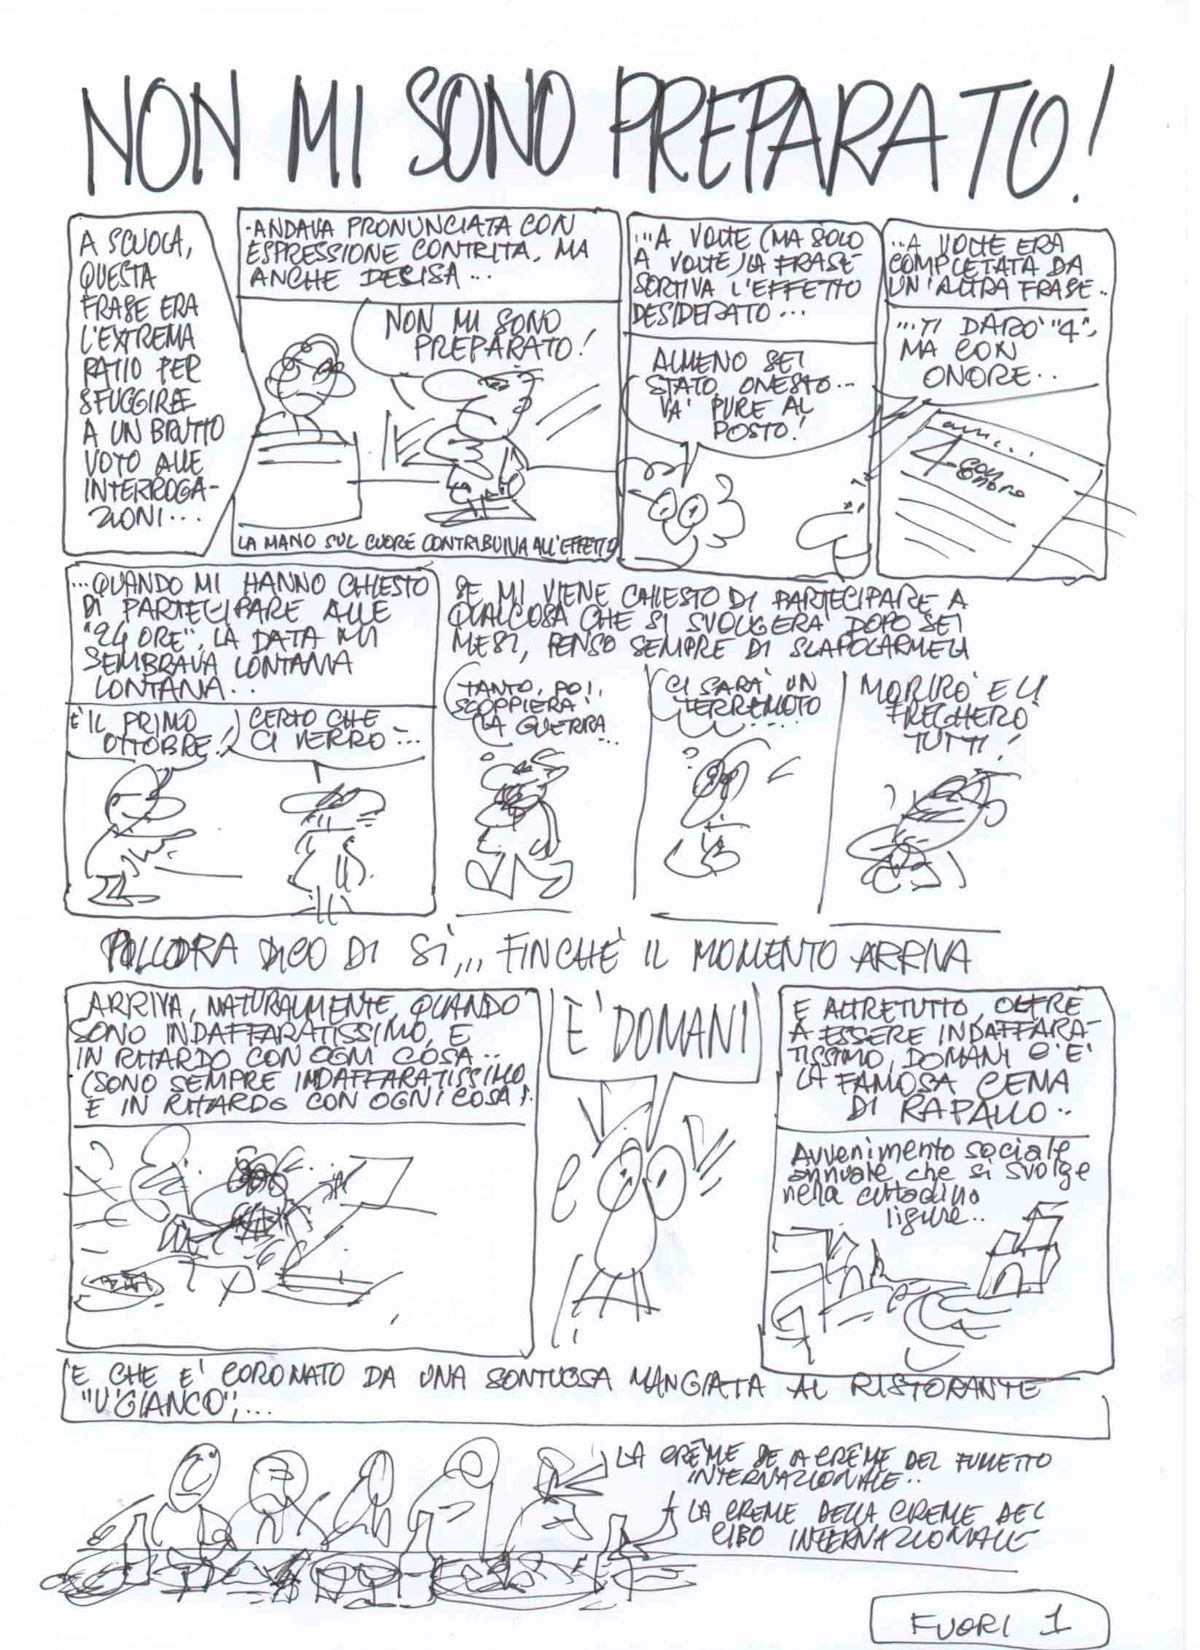 NON MI SONO PREPARATO!
A SCUOLA,
QUESTA
FRASE ERA
L'EXTREMA
RATIO PER
SFUGGIRE
A UN BRUTTO
VOTO ALLE
INTERROGA-
ZIONI...
-ANDAVA PRONUNCIATA CON
ESPRESSIONE CONTRITA, MA
ANCHE DECISA...
NON MI SONO
PREPARATO!
LA MANO SUL CUORE CONTRIBUIVA ALL'EFFETTO
...A VOLTE (MA SOLO
A VOLTE) LA FRASE
SORTIVA L'EFFETTO
DESIDERATO...
ALMENO SEI
STATO ONESTO...
VA' PURE AL
POSTO!
...A VOLTE ERA
COMPLETATA DA
UN'ALTRA FRASE..
...TI DARO' "4",
MA CON
ONORE..
4 con
onore
...QUANDO MI HANNO CHIESTO
DI PARTECIPARE ALLE
"24 ORE", LA DATA MI
SEMBRAVA LONTANA
LONTANA..
E' IL PRIMO
OTTOBRE!
CERTO CHE
CI VERRO'...
SE MI VIENE CHIESTO DI PARTECIPARE A
QUALCOSA CHE SI SVOLGERA' DOPO SEI
MESI, PENSO SEMPRE DI SCAPOLARMELA
TANTO, POI,
SCOPPIERA'
LA GUERRA...
CI SARA' UN
TERREMOTO....
MORIRO' E LI
FREGHERO'
TUTTI!
DICO DI SI'... FINCHE' IL MOMENTO ARRIVA
ARRIVA, NATURALMENTE, QUANDO
SONO INDAFFARATISSIMO, E
IN RITARDO CON OGNI COSA..
(SONO SEMPRE INDAFFARATISSIMO
E IN RITARDO CON OGNI COSA).
E' DOMANI
E ALTRETUTTO, OLTRE
A ESSERE INDAFFARA-
TISSIMO, DOMANI C'E'
LA FAMOSA CENA
DI RAPALLO..
Avvenimento sociale
annuale che si svolge
nella cittadina
ligure..
E CHE E' CORONATO DA UNA SONTUOSA MANGIATA AL RISTORANTE
"U'GIANCO";...
LA CRÊME DE A CRÊME DEL FUMETTO
INTERNAZIONALE..
LA CREME DELLA CREME DEL
CIBO INTERNAZIONALE
FUORI 1